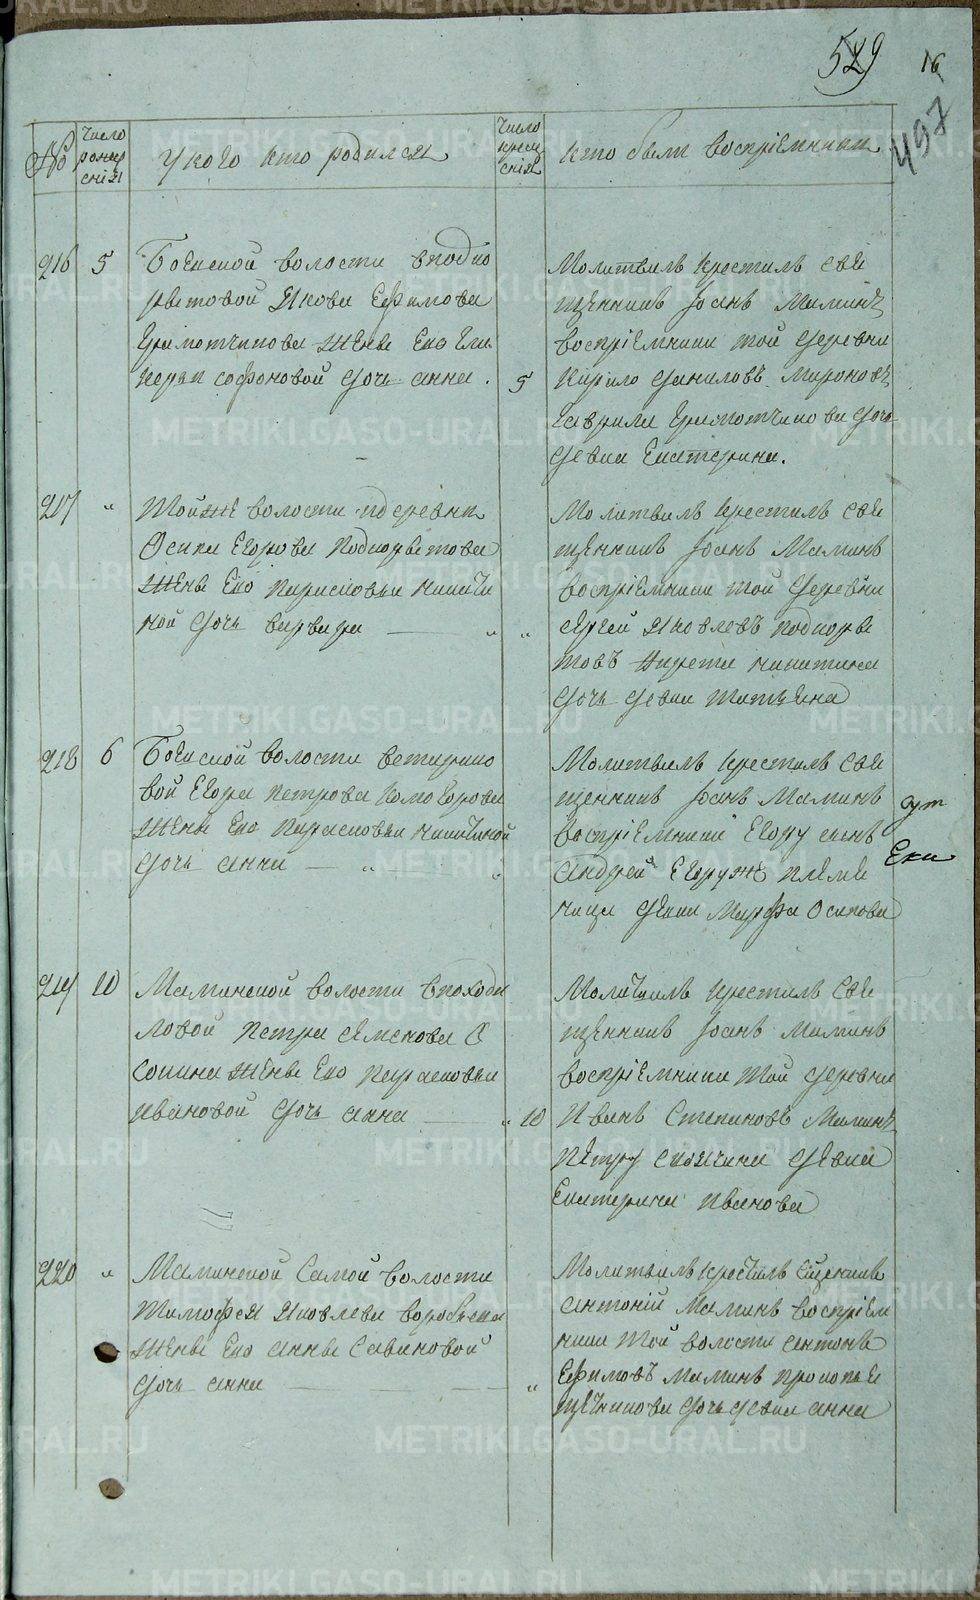 529 16
497
№
число рождения
у кого кто родился
число крещения
кто были восприемники
216 5
Боевской волости вподко
рытовой Якова Ефимова
Грамотчикова жене Его Гли
керьи софоновой дочь анна.
5
Молитвилъ крестилъ свя
щенникъ Іоанъ Маминъ
воспріемники той деревни
Кирило Даниловъ Мироновъ
Гаврила Грамотчикова дочь
девка Екатерина.
217 "
Тойже волости деревни
Осипа Егорова Подкорытова
жене Его Парасковьи никити
ной дочь варвара " "
Молитвилъ крестилъ свя
щенникъ Іоанъ Маминъ
воспріемники той деревни
Яковлевъ подкоры
товъ никитина
дочь девка Татьяна
218 6
Боевской волости
вой Егора Петрова Комогорова
жене Его Парасковьи никитиной
дочь анна "
Молитвилъ крестилъ свя
щенникъ Іоанъ Маминъ
воспріемники Егору сынъ
андрей Егоруж племе
ница девка Марфа Осипова
219 10
Маминской волости впоходи
ловой Петра семенова О
сокина жене Его Парасковьи
ивановой дочь анна " 10
Молитвилъ крестилъ свя
щенникъ Іоанъ маминъ
воспріемники той деревни
Иванъ Степановъ Маминъ
Петру своячина девка
Екатерина иванова
220 "
Маминской самой волости
Тимофея Яковлева
жене Его анне Савиновой
дочь анна "
Молитвилъ крестилъ сщенникъ
антоній Маминъ воспріем
ники той волости антонъ
Ефимовъ маминъ
дочь девка анна
METRIKI.GASO-URAL.RU